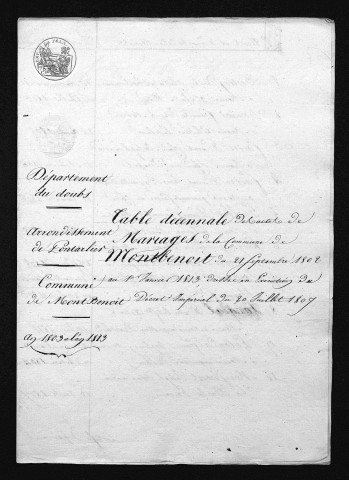 Département
du doubs
arrondissement
de Pontarlier
Commune
de MontBenoit
an 1803 à l'an 1813
Table décennale des actes de
Mariages de la Commune de
Montbenoit du 21 Septembre 1802
au 1er Janvier 1813 dressée en Exécution du
Décret Impérial du 20 Juillet 1807